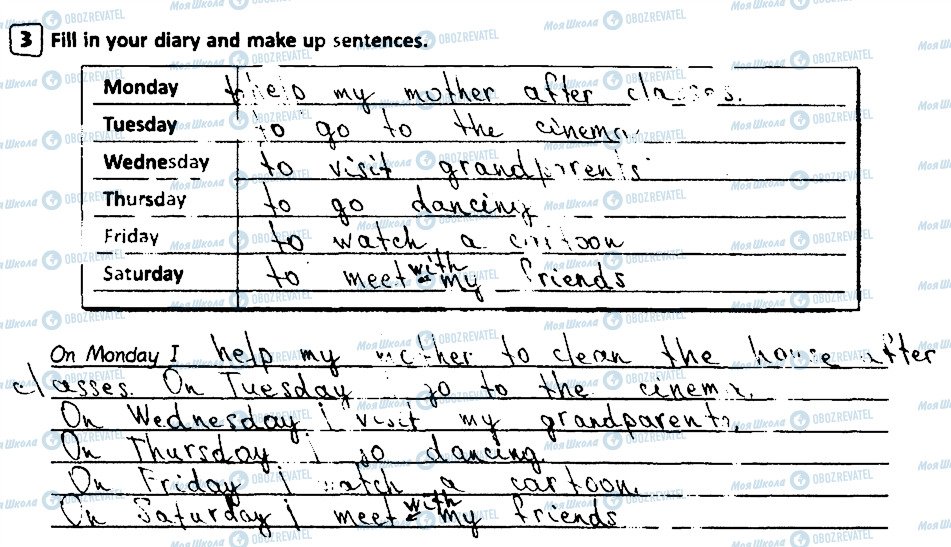 3 Fill in your diary and make up sentences.
Monday to help my mother after classes.
Tuesday to go to the cinema
Wednesday to visit grandparents
Thursday to go dancing
Friday to watch a cartoon
Saturday to meet with my friends
On Monday I help my mother to clean the house after
classes. On Tuesday I go to the cinema.
On Wednesday I visit my grandparents.
On Thursday I go dancing.
On Friday I watch a cartoon.
On Saturday I meet with my friends